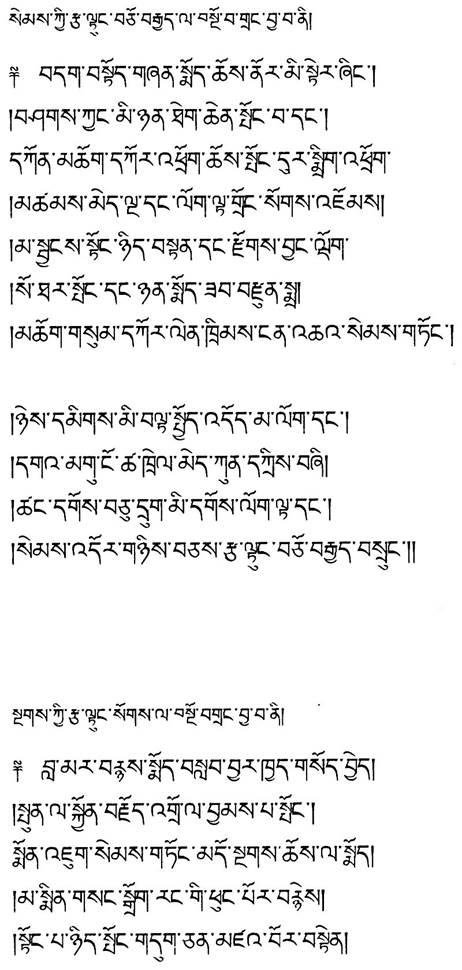 སེམས་ཀྱི་རྩ་ལྟུང་བཅོ་བརྒྱད་ལ་བསྔོ་བ་གྲང་བྱ་བ་ནི།
༈ བདག་བསྟོད་གཞན་སྨོད་ཆོས་ནོར་མི་སྟེར་ཞིང་།
།བཤགས་ཀྱང་མི་ཉན་ཐེག་ཆེན་སྤོང་བ་དང་།
དཀོན་མཆོག་དཀོར་འཕྲོག་ཆོས་སྤོང་དུར་སྨྲིག་འཕྲོག་
།མཚམས་མེད་ལྔ་དང་ལོག་ལྟ་གྲོང་སོགས་འཇོམས།
།མ་སྦྱངས་སྟོང་ཉིད་བསྟན་དང་རྫོགས་བྱང་ལྡོག་
།སོ་ཐར་སྤོང་དང་ཉན་སྨོད་ཟབ་བརྫུན་སྨྲ།
།མཆོག་གསུམ་དཀོར་ལེན་ཁྲིམས་ངན་འཆའ་སེམས་གཏོང་།
།ཉེས་དམིགས་མི་བལྟ་སྤྱོད་འདོད་མ་ལོག་དང་།
།དགའ་མགུ་ངོ་ཚ་ཁྲེལ་མེད་ཀུན་དཀྲིས་བཞི།
།ཚང་དགོས་བཅུ་དྲུག་མི་དགོས་ལོག་ལྟ་དང་།
།སེམས་འདོར་གཉིས་བཅས་རྩ་ལྟུང་བཅོ་བརྒྱད་བསྲུང་།།
སྔགས་ཀྱི་རྩ་ལྟུང་སོགས་ལ་བསྔོ་བགྲང་བྱ་བ་ནི།
༈ བླ་མར་བརྙས་སྨོད་བསླབ་བྱར་ཁྱད་གསོད་བྱེད།
།སྤུན་ལ་སྐྱོན་བརྗོད་འགྲོ་ལ་བྱམས་པ་སྤོང་།
སྨོན་འཇུག་སེམས་གཏོང་མདོ་སྔགས་ཆོས་ལ་སྨོད།
།མ་སྨིན་གསང་སྒྲོག་རང་གི་ཕུང་པོར་བརྙེས།
།སྟོང་པ་ཉིད་སྤོང་གདུག་ཅན་མཛའ་བོར་བསྟེན།